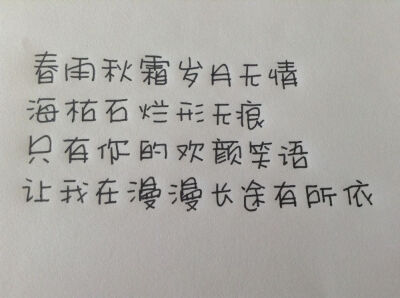 春雨秋霜岁月无情
海枯石烂形无痕
只有你的欢颜笑语
让我在漫漫长途有所依